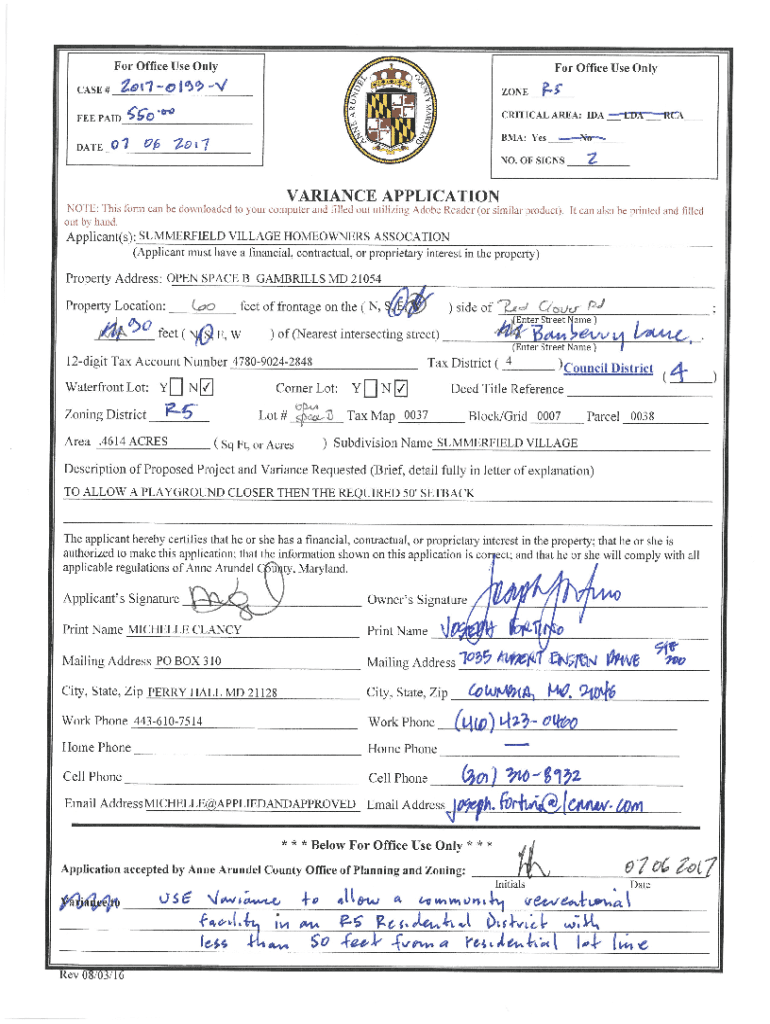 For Office Use Only
CASE # 2017-0199-V
FEE PAID 550.00
DATE 07 06 2017
ANNE ARUNDEL COUNTY, MARYLAND
For Office Use Only
ZONE R5
CRITICAL AREA: IDA LDA RCA
BMA: Yes No
NO. OF SIGNS 2
VARIANCE APPLICATION
NOTE: This form can be downloaded to your computer and filled out utilizing Adobe Reader (or similar product). It can also be printed and filled
out by hand.
Applicant(s): SUMMERFIELD VILLAGE HOMEOWNERS ASSOCATION
(Applicant must have a financial, contractual, or proprietary interest in the property)
Property Address: OPEN SPACE B GAMBRILLS MD 21054
Property Location: 600 feet of frontage on the ( N, S, E, ) side of Red Clover Rd ;
(Enter Street Name )
90 feet ( N, E, W ) of (Nearest intersecting street) Banberry Lane.
(Enter Street Name )
12-digit Tax Account Number 4780-9024-2848 Tax District ( 4 ) Council District ( 4 )
Waterfront Lot: Y N ✓ Corner Lot: Y N ✓ Deed Title Reference
Zoning District R5 Lot # open space B Tax Map 0037 Block/Grid 0007 Parcel 0038
Area .4614 ACRES ( Sq Ft, or Acres ) Subdivision Name SUMMERFIELD VILLAGE
Description of Proposed Project and Variance Requested (Brief, detail fully in letter of explanation)
TO ALLOW A PLAYGROUND CLOSER THEN THE REQUIRED 50' SETBACK
The applicant hereby certifies that he or she has a financial, contractual, or proprietary interest in the property; that he or she is
authorized to make this application; that the information shown on this application is correct; and that he or she will comply with all
applicable regulations of Anne Arundel County, Maryland.
Applicant's Signature Owner's Signature Joseph Fortino
Print Name MICHELLE CLANCY Print Name JOSEPH FORTINO
Mailing Address PO BOX 310 Mailing Address 7035 ALBERT EINSTEIN DRIVE STE 200
City, State, Zip PERRY HALL MD 21128 City, State, Zip COLUMBIA, MD. 21046
Work Phone 443-610-7514 Work Phone (410) 423-0460
Home Phone Home Phone —
Cell Phone Cell Phone (301) 310-8932
Email Address MICHELLE@APPLIEDANDAPPROVED Email Address joseph.fortino@lennar.com
* * * Below For Office Use Only * * *
Application accepted by Anne Arundel County Office of Planning and Zoning: 07 06 2017
Initials Date
Variance to USE Variance to allow a community recreational
facility in an R5 Residential District with
less than 50 feet from a residential lot line
Rev 08/03/16